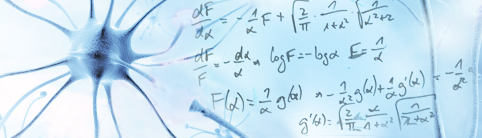 dF/dα = -1/α F + √(2/π) · 1/(1+α²) √(1/(α²+2))
dF/F = -dα/α ⇒ log F = -log α F = 1/α
F(α) = 1/α g(α) ⇒ -1/α² g(α) + 1/α g'(α) = -1/α²
g'(α) = √(2/π) α/(1+α²) √(1/(2+α²))